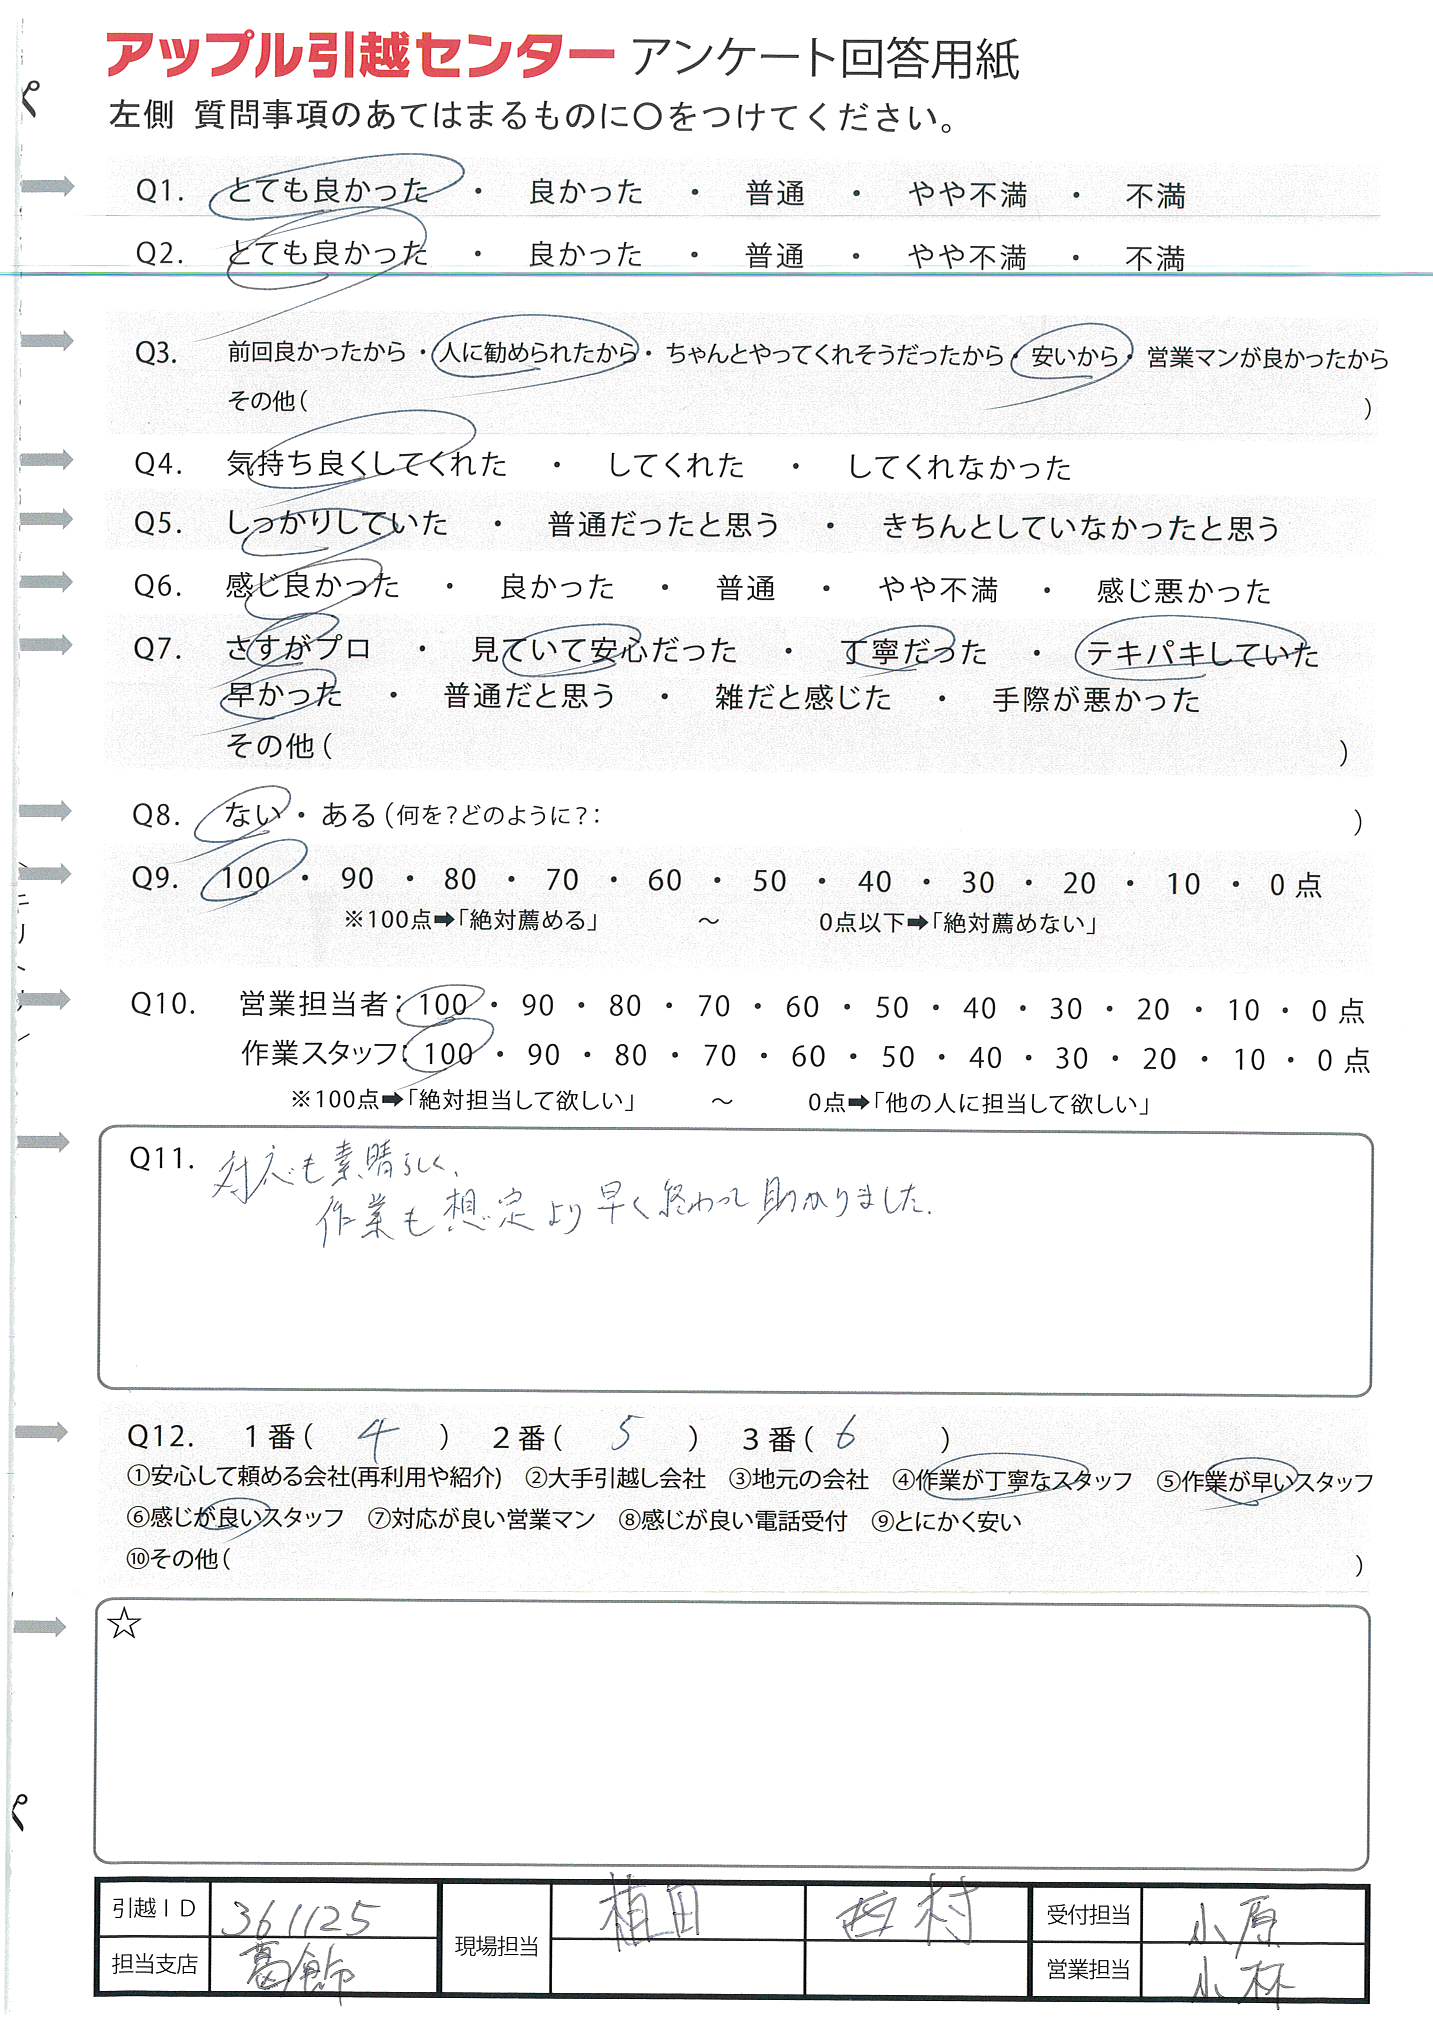 アップル引越センター アンケート回答用紙
左側 質問事項のあてはまるものに○をつけてください。
Q1. とても良かった ・ 良かった ・ 普通 ・ やや不満 ・ 不満
Q2. とても良かった ・ 良かった ・ 普通 ・ やや不満 ・ 不満
Q3. 前回良かったから ・ 人に勧められたから ・ ちゃんとやってくれそうだったから ・ 安いから ・ 営業マンが良かったから
その他( )
Q4. 気持ち良くしてくれた ・ してくれた ・ してくれなかった
Q5. しっかりしていた ・ 普通だったと思う ・ きちんとしていなかったと思う
Q6. 感じ良かった ・ 良かった ・ 普通 ・ やや不満 ・ 感じ悪かった
Q7. さすがプロ ・ 見ていて安心だった ・ 丁寧だった ・ テキパキしていた
早かった ・ 普通だと思う ・ 雑だと感じた ・ 手際が悪かった
その他( )
Q8. ない ・ ある (何を?どのように?: )
Q9. 100 ・ 90 ・ 80 ・ 70 ・ 60 ・ 50 ・ 40 ・ 30 ・ 20 ・ 10 ・ 0 点
※100点➡「絶対薦める」 ～ 0点以下➡「絶対薦めない」
Q10. 営業担当者: 100 ・ 90 ・ 80 ・ 70 ・ 60 ・ 50 ・ 40 ・ 30 ・ 20 ・ 10 ・ 0 点
作業スタッフ: 100 ・ 90 ・ 80 ・ 70 ・ 60 ・ 50 ・ 40 ・ 30 ・ 20 ・ 10 ・ 0 点
※100点➡「絶対担当して欲しい」 ～ 0点➡「他の人に担当して欲しい」
Q11. 対応も素晴らしく、
作業も想定より早く終わって助かりました.
Q12. 1番( 4 ) 2番( 5 ) 3番( 6 )
①安心して頼める会社(再利用や紹介) ②大手引越し会社 ③地元の会社 ④作業が丁寧なスタッフ ⑤作業が早いスタッフ
⑥感じが良いスタッフ ⑦対応が良い営業マン ⑧感じが良い電話受付 ⑨とにかく安い
⑩その他( )
☆
引越ID 361125 現場担当 植田 西村 受付担当 小原
担当支店 葛飾 営業担当 小林